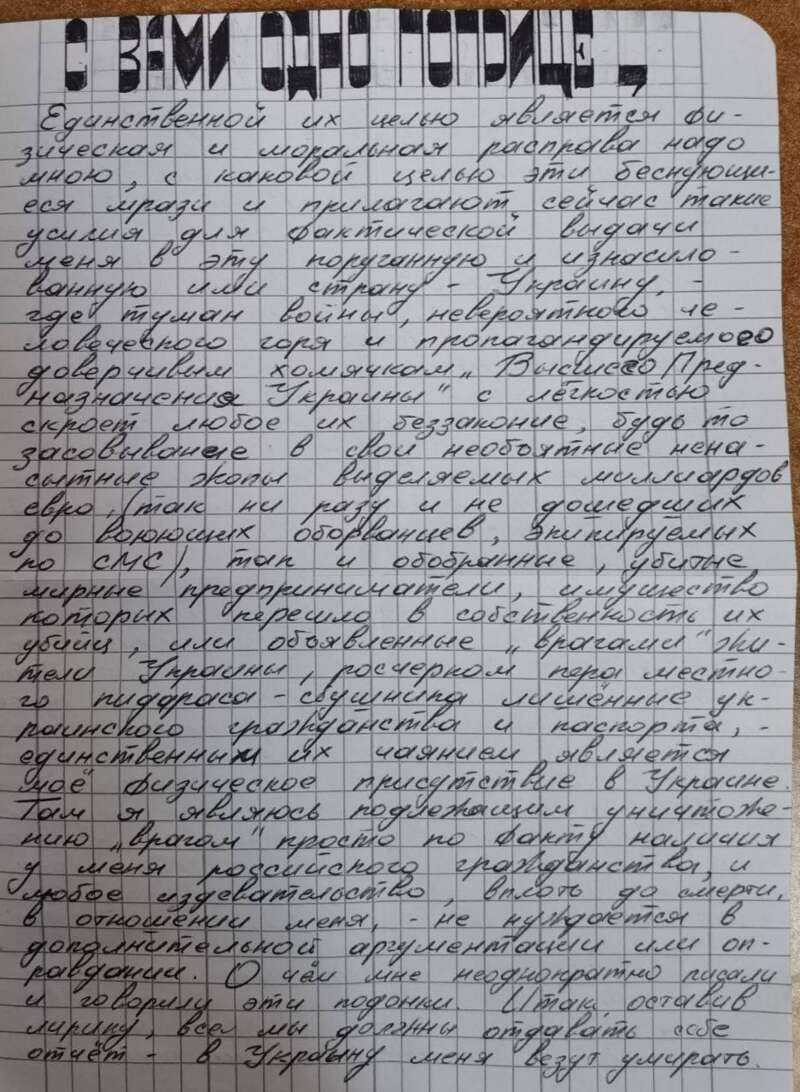 С ВАМИ ОДНО ПОПРИЩЕ
Единственной их целью является фи-
зическая и моральная расправа надо
мною, с каковой целью эти беснующи-
еся мрази и прилагают сейчас такие
усилия для фактической выдачи
меня в эту поруганную и изнасило-
ванную ими страну - Украину, -
где туман войны, невероятного че-
ловеческого горя и пропагандируемого
доверчивым хомячкам „Высшего Пред-
назначения Украины" с лёгкостью
скроет любое их беззаконие, будь то
засовывание в свои необъятные нена-
сытные жопы выделяемых миллиардов
евро, (так ни разу и не дошедших
до воюющих оборванцев, экипируемых
по СМС), так и обобранные, убитые
мирные предприниматели, имущество
которых перешло в собственность их
убийц, или объявленные „врагами" жи-
тели Украины, росчерком пера местно-
го пидараса - сбушника лишённые ук-
раинского гражданства и паспорта, -
единственным их чаянием является
моё физическое присутствие в Украине.
Там я являюсь подлежащим уничтоже-
нию „врагом" просто по факту наличия
у меня российского гражданства, и
любое издевательство, вплоть до смерти,
в отношении меня, - не нуждается в
дополнительной аргументации или оп-
равдании. О чём мне неоднократно писали
и говорили эти подонки. Итак, оставив
лирику, все мы должны отдавать себе
отчёт - в Украину меня везут умирать.